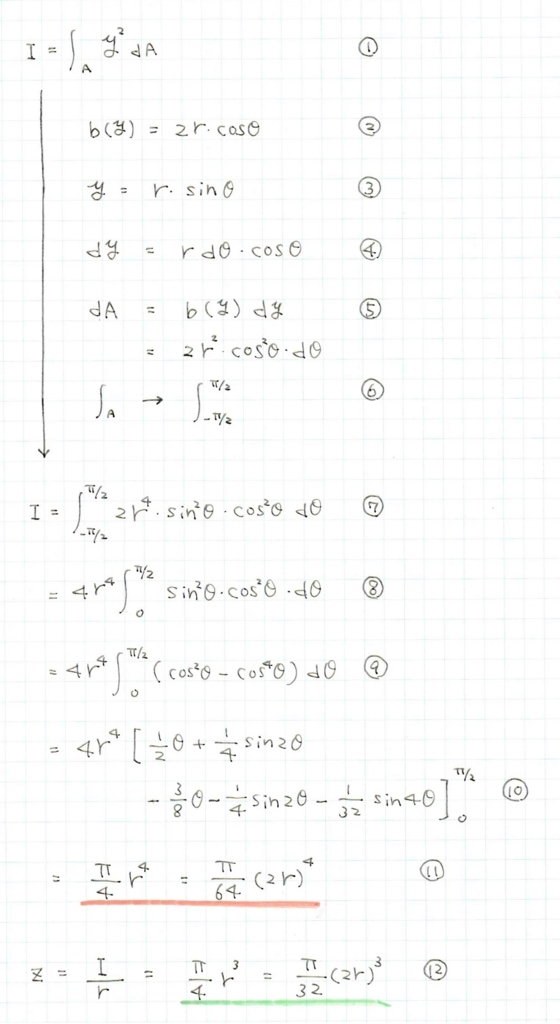 I = ∫_A y² dA ①
b(y) = 2r·cosθ ②
y = r·sinθ ③
dy = r dθ·cosθ ④
dA = b(y) dy ⑤
= 2r²·cos²θ·dθ
∫_A → ∫_{-π/2}^{π/2} ⑥
I = ∫_{-π/2}^{π/2} 2r⁴·sin²θ·cos²θ dθ ⑦
= 4r⁴ ∫_0^{π/2} sin²θ·cos²θ·dθ ⑧
= 4r⁴ ∫_0^{π/2} (cos²θ - cos⁴θ) dθ ⑨
= 4r⁴ [ 1/2 θ + 1/4 sin2θ
- 3/8 θ - 1/4 sin2θ - 1/32 sin4θ ]_0^{π/2} ⑩
= π/4 r⁴ = π/64 (2r)⁴ ⑪
Z = I/r = π/4 r³ = π/32 (2r)³ ⑫